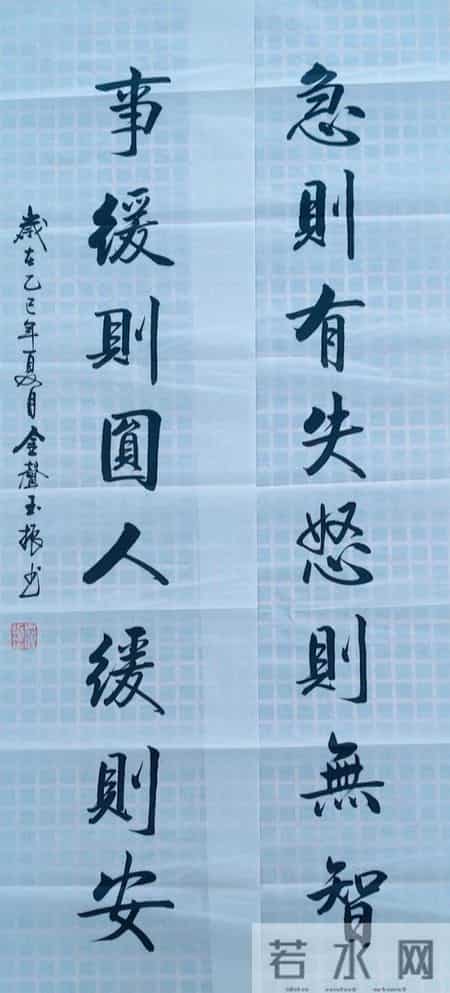 急則有失怒則無智
事緩則圓人緩則安
歲在乙巳年夏月金聲玉振书
若水网